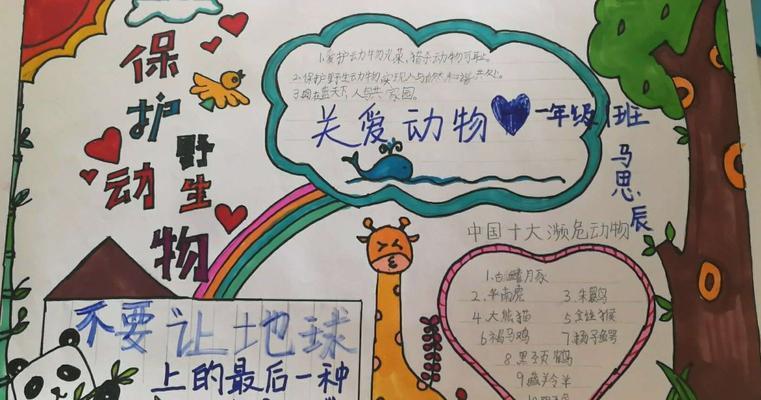 保护野生动物
1.爱护动物光荣,猎杀动物可耻。
2.保护野生动物,实现人与自然和谐共处。
3.同在蓝天下,人与共家园。
关爱动物
一年级1班
马思辰
中国十大濒危动物
1.白鳍豚
2.华南虎
3.朱鹮
4.大熊猫
5.金丝猴
6.褐马鸡
7.扬子鳄
8.黑颈鹤
9.藏羚羊
不要让地球
上的最后一种